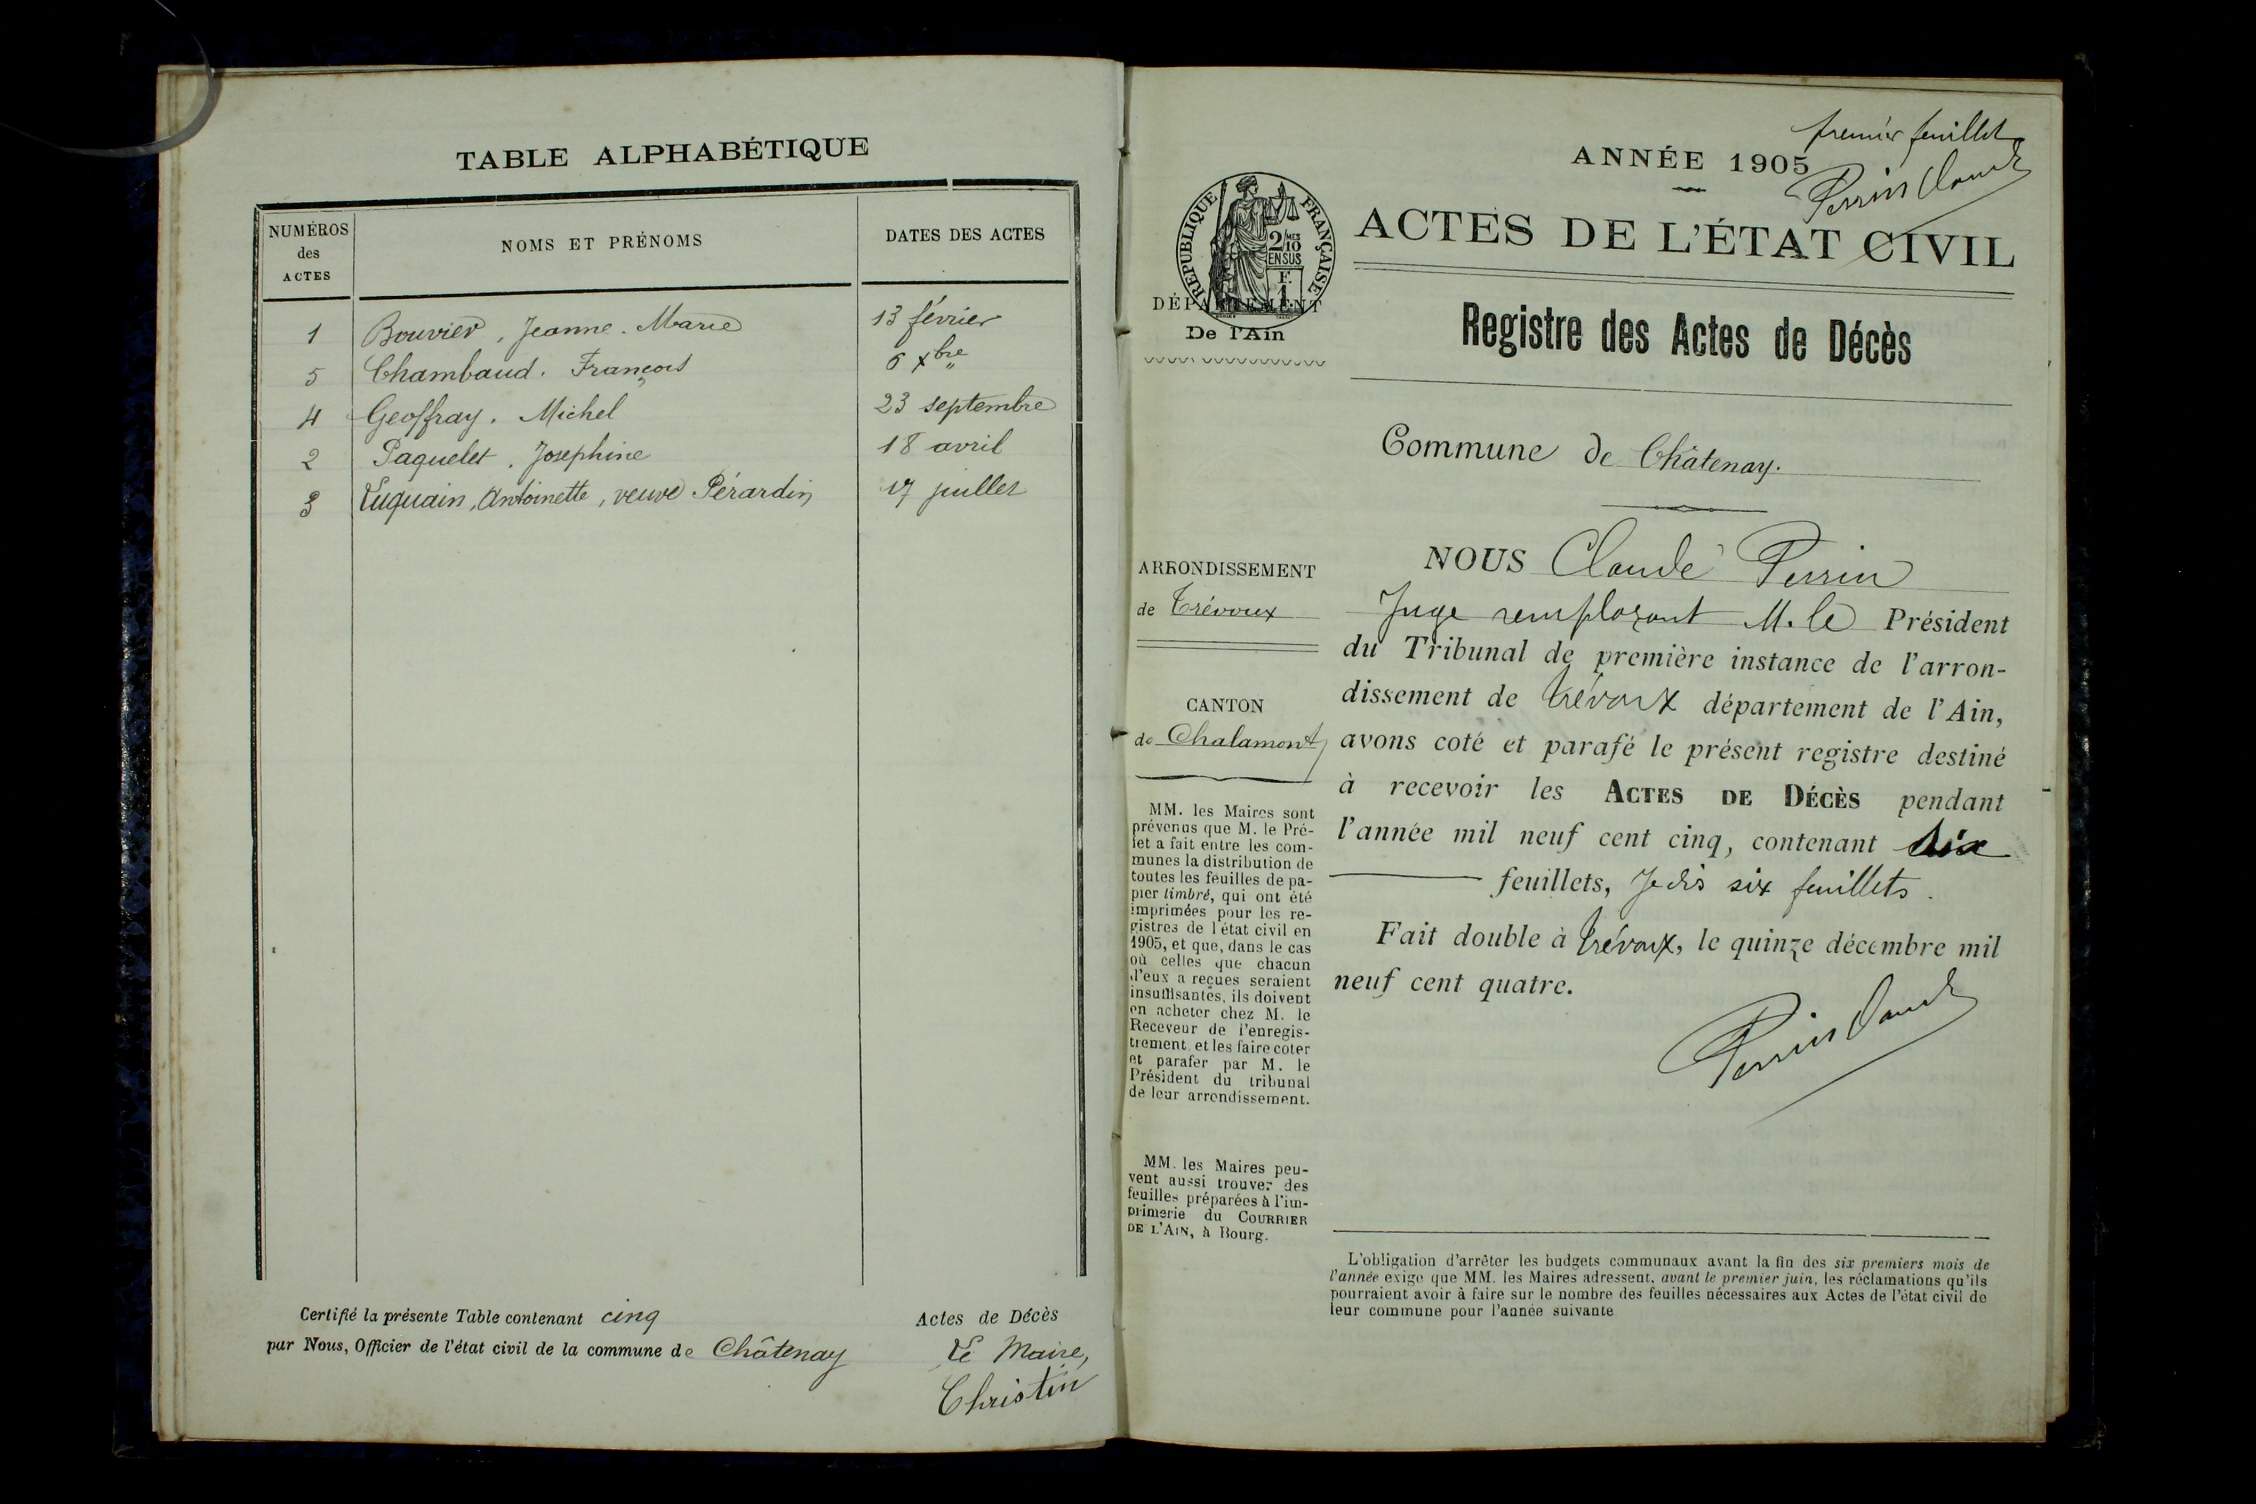 TABLE ALPHABÉTIQUE
NUMÉROS des ACTES
NOMS ET PRÉNOMS
DATES DES ACTES
1 Bouvier, Jeanne-Marie 13 février
5 Chambaud. François 6 xbre
4 Geoffray. Michel 23 septembre
2 Paquelet. Josephine 18 avril
3 Luquain, Antoinette, veuve Pérardin 17 juillet
Certifié la présente Table contenant cinq Actes de Décès
par Nous, Officier de l'état civil de la commune de Châtenay
Le Maire,
Christin
premier feuillet
Perrin Claude
ANNÉE 1905
ACTES DE L'ÉTAT CIVIL
RÉPUBLIQUE FRANÇAISE
2/10 MES
EN SUS
F.
1
DÉPARTEMENT
De l'Ain
Registre des Actes de Décès
Commune de Châtenay.
ARRONDISSEMENT
de Trévoux
CANTON
de Chalamont
MM. les Maires sont
prévenus que M. le Pré-
fet a fait entre les com-
munes la distribution de
toutes les feuilles de pa-
pier timbré, qui ont été
imprimées pour les re-
gistres de l'état civil en
1905, et que, dans le cas
où celles que chacun
d'eux a reçues seraient
insuffisantes, ils doivent
en acheter chez M. le
Receveur de l'enregis-
trement et les faire coter
et parafer par M. le
Président du tribunal
de leur arrondissement.
MM. les Maires peu-
vent aussi trouver des
feuilles préparées à l'im-
primerie du COURRIER
DE L'AIN, à Bourg.
NOUS Claude Perrin
Juge remplaçant M. le Président
du Tribunal de première instance de l'arron-
dissement de Trévoux département de l'Ain,
avons coté et parafé le présent registre destiné
à recevoir les ACTES DE DÉCÈS pendant
l'année mil neuf cent cinq, contenant six
feuillets, Je dis six feuillets.
Fait double à Trévoux, le quinze décembre mil
neuf cent quatre.
Perrin Claude
L'obligation d'arrêter les budgets communaux avant la fin des six premiers mois de
l'année exige que MM. les Maires adressent, avant le premier juin, les réclamations qu'ils
pourraient avoir à faire sur le nombre des feuilles nécessaires aux Actes de l'état civil de
leur commune pour l'année suivante